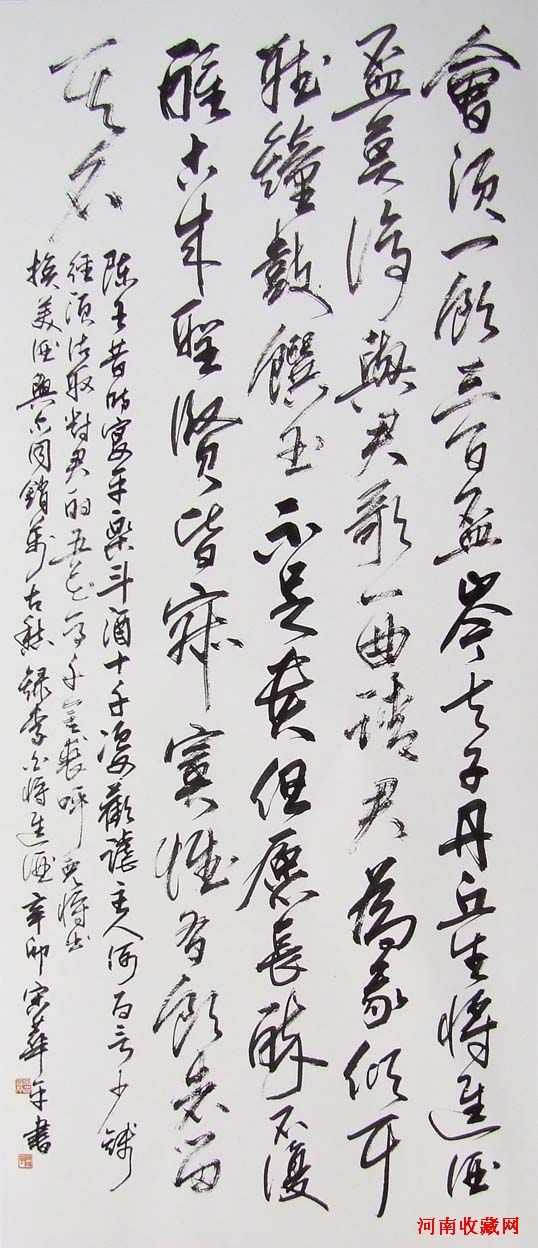 會須一飲三百盃岑夫子丹丘生將進酒
盃莫停與君歌一曲請君為我傾耳
聽鐘鼓饌玉不足貴但願長醉不復
醒古來聖賢皆寂寞惟有飲者留
其名
陳王昔時宴平樂斗酒十千恣歡謔主人何為言少錢
徑須沽取對君酌五花馬千金裘呼兒將出
換美酒與尔同銷萬古愁 錄李白將進酒 辛卯宋華平書
河南收藏网